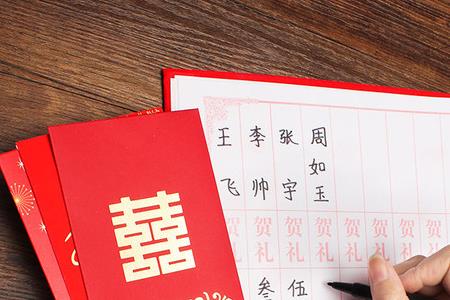 囍
王飞
贺礼
李帅
贺礼
叁
张宇
贺礼
伍
周如玉
贺礼
贺礼
贺礼
贺礼
贺礼